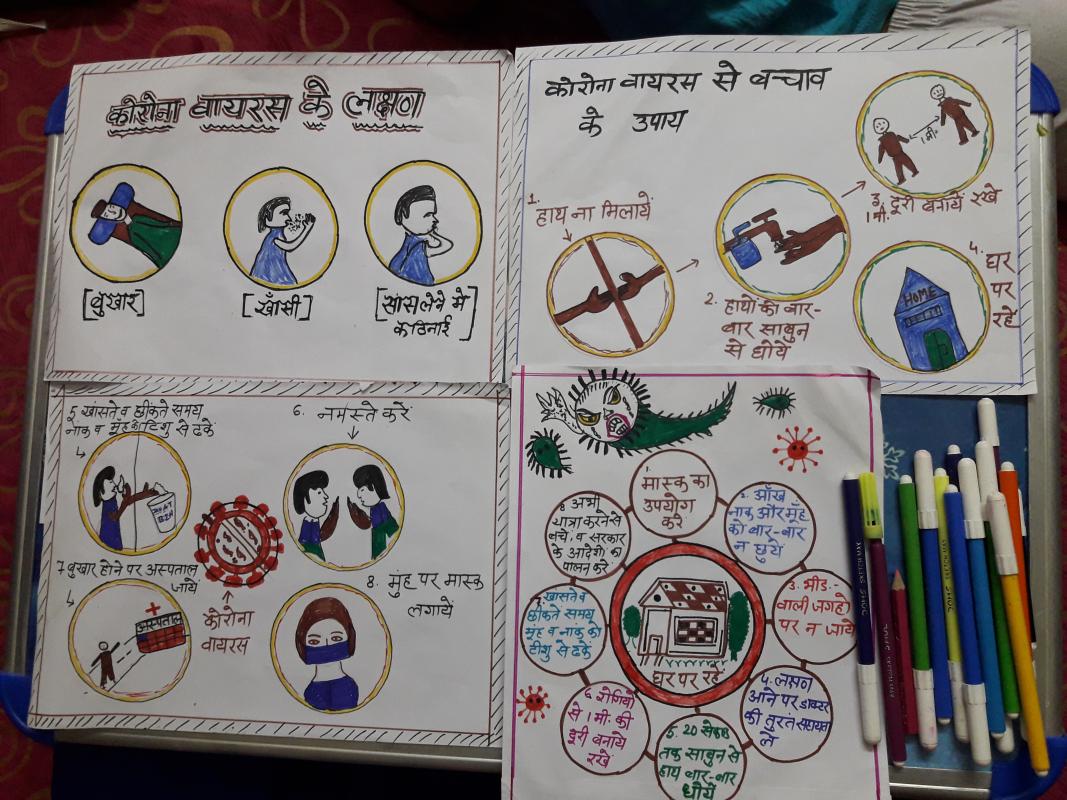 कोरोना वायरस के लक्षण
[बुखार]
[खाँसी]
[सांस लेने में
कठिनाई]
कोरोना वायरस से बचाव
के उपाय
1.
हाथ ना मिलायें
2. हाथों को बार-
बार साबुन
से धोयें
1 मी.
3.
1 मी. दूरी बनायें रखे
4. घर
पर
रहें
HOME
5. खांसते व छींकते समय
नाक व मुंह को टिशु से ढकें
6. नमस्ते करें
7. बुखार होने पर अस्पताल
जायें
अस्पताल
कोरोना
वायरस
8. मुंह पर मास्क
लगायें
1.
मास्क का
उपयोग
करें
2. आँख
नाक और मूँह
को बार-बार
न छुयें
3. भीड़-
वाली जगहो
पर न जायें
4. लक्षण
आने पर डाक्टर
की तुरंत सहायता
ले
5. 20 सेकेंड
तक साबुन से
हाथ बार-बार
धोयें
6. रोगियों
से 1 मी. की
दूरी बनाये
रखें
7. खांसते व
छींकते समय
मूंह व नाक को
टीशु से ढकें
8 अभी
यात्रा करने से
बचें, व सरकार
के आदेशों का
पालन करें
घर पर रहें